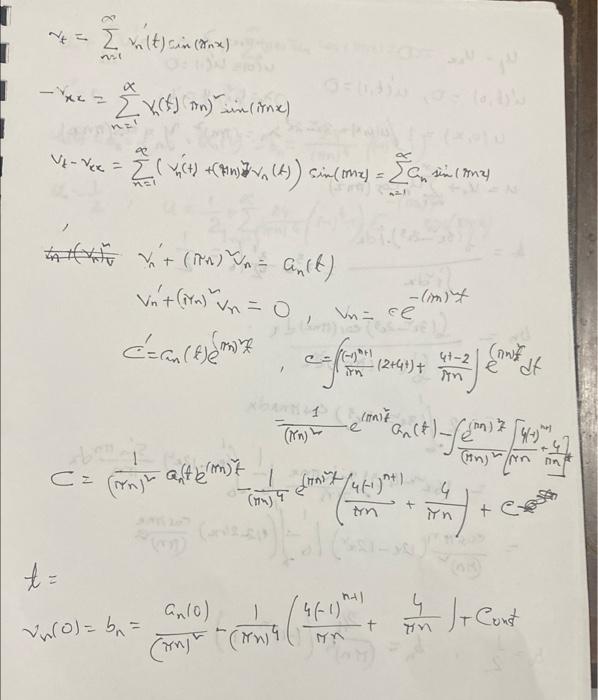 v_t = ∑_{n=1}^{∝} v_n'(t) sin(πnx)
-v_xx = ∑_{n=1}^{∝} v_n(t) (πn)² sin(πnx)
v_t - v_xx = ∑_{n=1}^{∝} (v_n'(t) + (πn)² v_n(t)) sin(πnx) = ∑_{n=1}^{∝} a_n sin(πnx)
v_n' + (πn)² v_n = a_n(t)
v_n' + (πn)² v_n = 0 , v_n = c e^{-(πn)²t}
C' = a_n(t) e^{(πn)²t} , c = ∫[(-1)^{n+1}/πn (2+4t) + (4t-2)/πn] e^{(πn)²t} dt
= 1/(πn)² e^{(πn)²t} a_n(t) - ∫ e^{(πn)²t}/(πn)² [4(-1)^{n+1}/πn + 4/πn]
C = 1/(πn)² a_n(t) e^{(πn)²t} - 1/(πn)⁴ e^{(πn)²t} (4(-1)^{n+1}/πn + 4/πn) + C
t =
v_n(0) = b_n = a_n(0)/(πn)² - 1/(πn)⁴ (4(-1)^{n+1}/πn + 4/πn) + Const